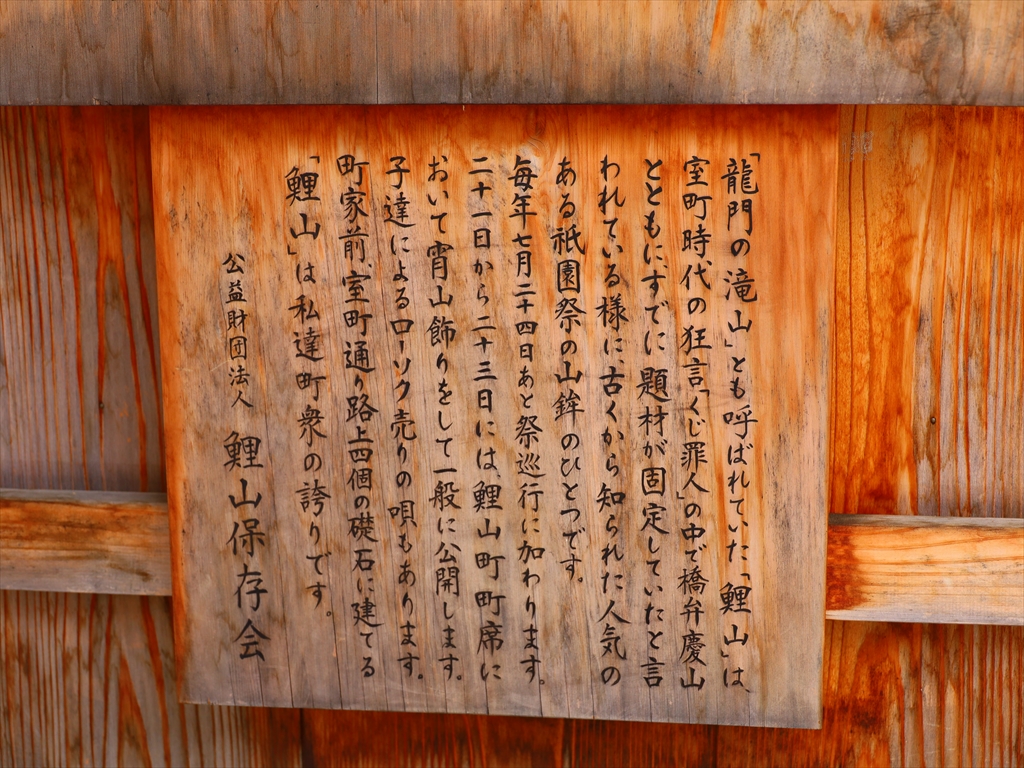 「龍門の滝山」とも呼ばれていた「鯉山」は、
室町時代の狂言「くじ罪人」の中で橋弁慶山
とともに、すでに題材が固定していたと言
われている様に、古くから知られた人気の
ある祇園祭の山鉾のひとつです。
毎年七月二十四日あと祭巡行に加わります。
二十一日から二十三日には鯉山町町席に
おいて宵山飾りをして一般に公開します。
子達によるローソク売りの唄もあります。
町家前、室町通り路上四個の礎石に建てる
「鯉山」は私達町衆の誇りです。
公益財団法人 鯉山保存会